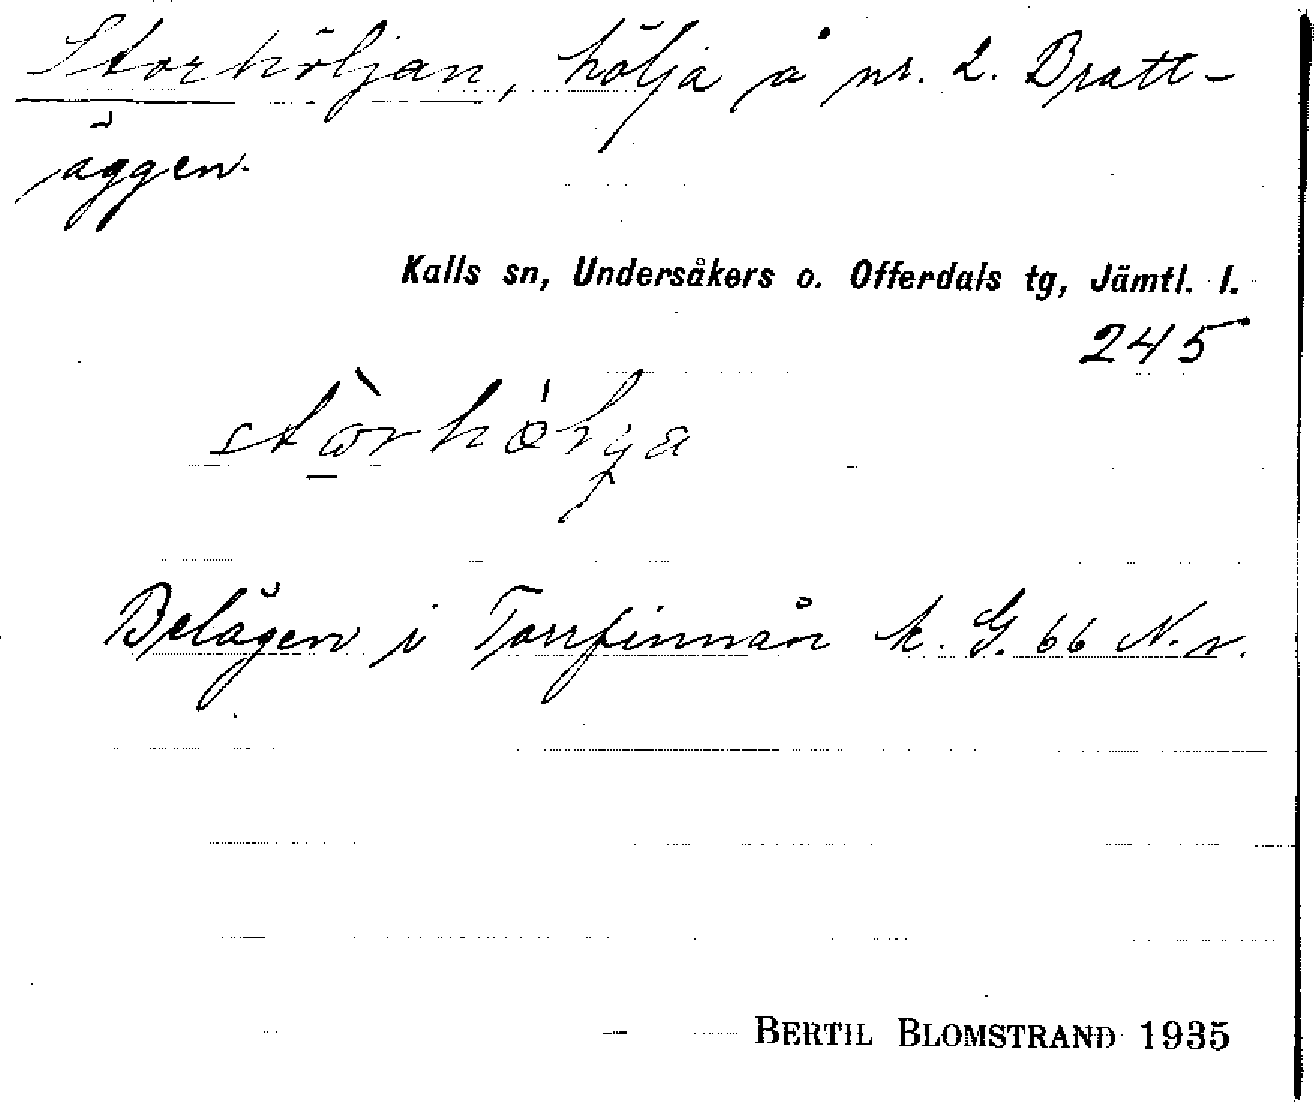 Storhöljan, hölja å nr. 2. Bratt-
äggen.
Kalls sn, Undersåkers o. Offerdals tg, Jämtl. l.
245
Belägen i Torrfinnån k. G. 66 N.v.
BERTIL BLOMSTRAND 1935